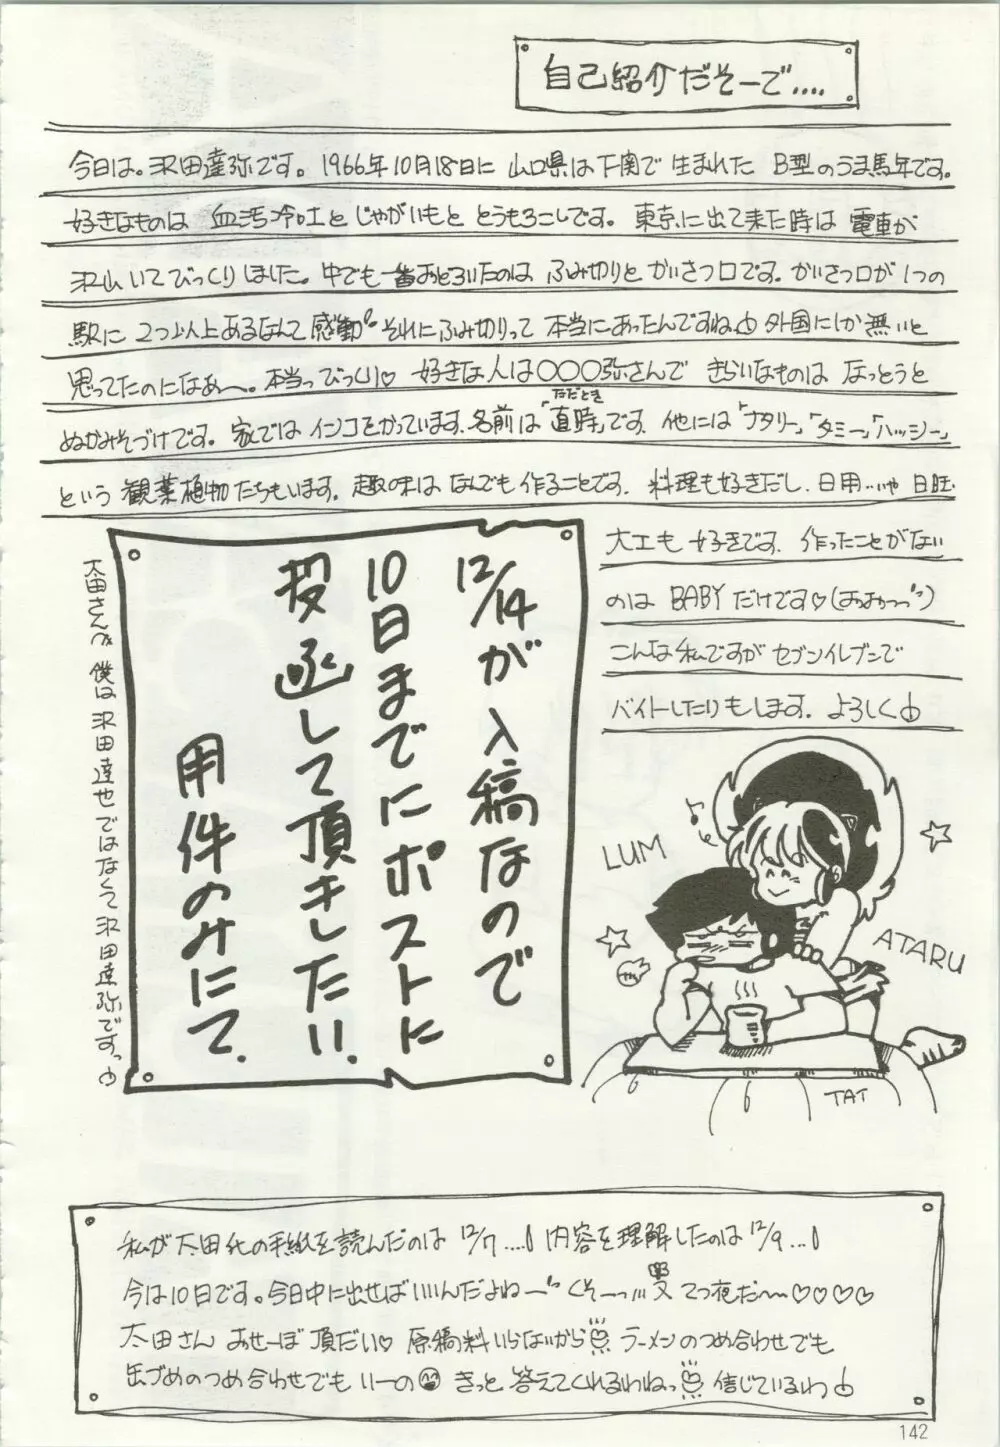 自己紹介だそーで‥‥
今日は。沢田達弥です。1966年10月18日に 山口県は下関で 生まれた B型のうま馬年です。
好きなものは 血汚冷吐と じゃがいもと とうもろこしです。東京に出て来た時は 電車が
沢山いてびっくりしました。中でも一番おどろいたのは ふみ切りと かいさつ口です。かいさつ口が1つの
駅に 2つ以上あるなんて感動〃 それにふみ切りって 本当にあったんですね 外国にしか無いと
思ってたのになあ〜。本当っびっくり♡ 好きな人は〇〇〇弥さんで きらいなものは なっとうと
ぬかみそづけです。家では インコをかっています、名前は「直時」です、他には「ナタリー」「タミー」「ハッシー」
ただとき
という 観葉植物たちもいます。趣の味は なんでも作ることです、料理も好きだし、日用‥いや 日旺
大工も 好きです、作ったことがない
のは BABYだけです♡
こんな私ですが セブンイレブンで
バイトしたりもします、よろしく
12/14が入稿なので
10日までにポストに
投函して頂きしたい、
用件のみにて、
太田さんへ 僕は沢田達也ではなくて沢田達弥ですっ
LUM
ATARU
TAT
私が太田氏の手紙を読んだのは 12/7‥‥! 内容を理解したのは12/9‥!
今は10日です。今日中に出せばいいんだよねー〃 くそーっ!!! 又 てつ夜だ〜♡♡♡♡
太田さん おせーぼ頂だい♡ 原稿料いらないから ラーメンのつめ合わせでも
缶づめのつめ合わせでも いーの きっと 答えてくれるわねっ 信じているわ
142